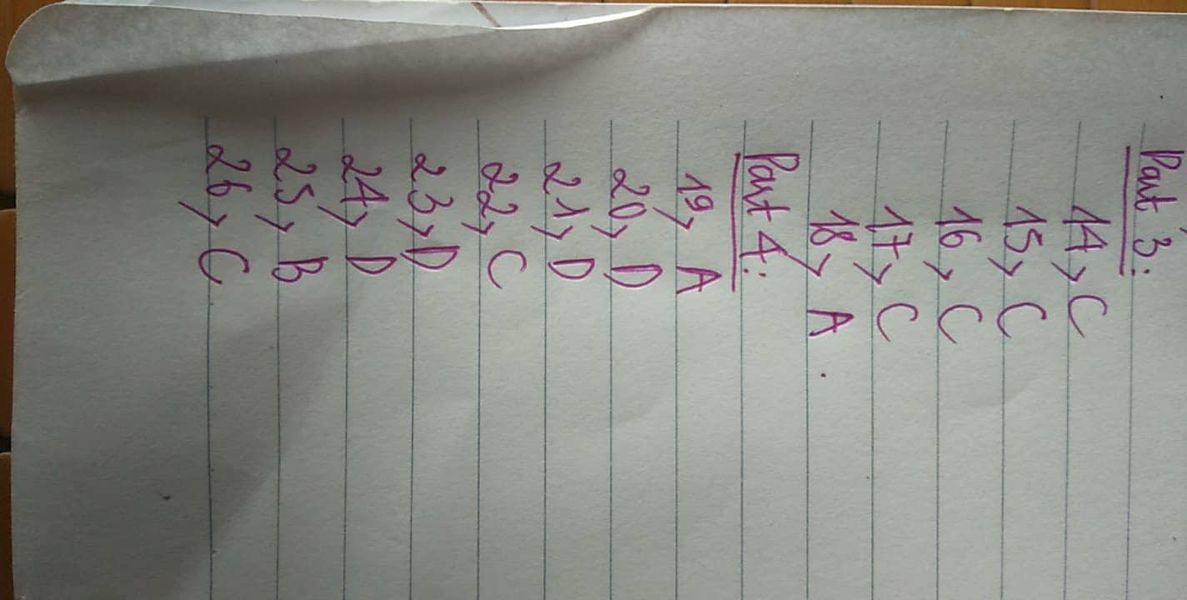 Part 3:
14> C
15> C
16> C
17> C
18> A
Part 4:
19> A
20> D
21> D
22> C
23> D
24> D
25> B
26> C